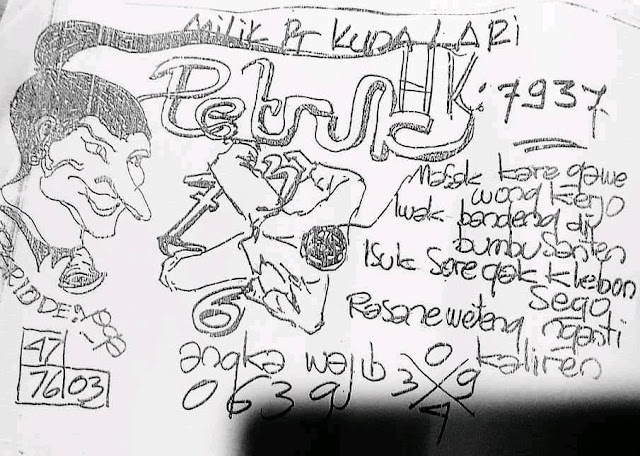 Milik PT KUDA LARI
Petruk
HK: 7937
7 3
6
Masak kare gawe
wong kerjo
Iwak bandeng di
bumbu santen
Isuk Sore gak klebon
Sego
Rasane weteng nganti
kaliren
angka wajib
0639
0
3 9
4
47
76 03